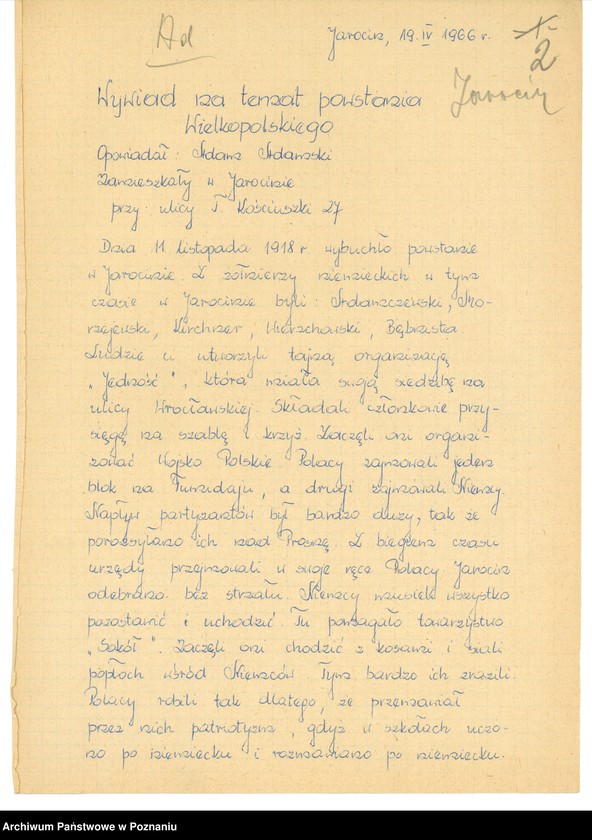 Ad
Jarocin, 19. IV 1966 r.
2
Jarocin
Wywiad na temat powstania
Wielkopolskiego
Opowiadał: Adam Adamski
Zamieszkały w Jarocinie
przy ulicy T. Kościuszki 27
Dnia 11 listopada 1918 r. wybuchło powstanie
w Jarocinie. Z żołnierzy niemieckich w tym
czasie w Jarocinie byli: Adamczewski, Mo-
rzejewski, Kirchner, Wierzchowski, Bębnista.
Ludzie ci utworzyli tajną organizację
„Jedność", która miała swoją siedzibę na
ulicy Wrocławskiej. Składali członkowie przy-
sięgę na szablę i krzyż. Zaczęli oni organi-
zować Wojsko Polskie Polacy zajmowali jeden
blok na , a drugi zajmowali Niemcy.
Napływ partyzantów był bardzo duży, tak że
porozsyłano ich nad Prosnę. Z biegiem czasu
urzędy przejmowali w swoje ręce Polacy. Jarocin
odebrano bez strzału. Niemcy musieli wszystko
pozostawić i uchodzić. Tu pomagało towarzystwo
„Sokół". Zaczęli oni chodzić z kosami i siali
popłoch wśród Niemców. Tym bardzo ich zrazili.
Polacy robili tak dlatego, że przemawiał
przez nich patriotyzm, gdyż w szkołach uczo-
no po niemiecku i rozmawiano po niemiecku.
Archiwum Państwowe w Poznaniu